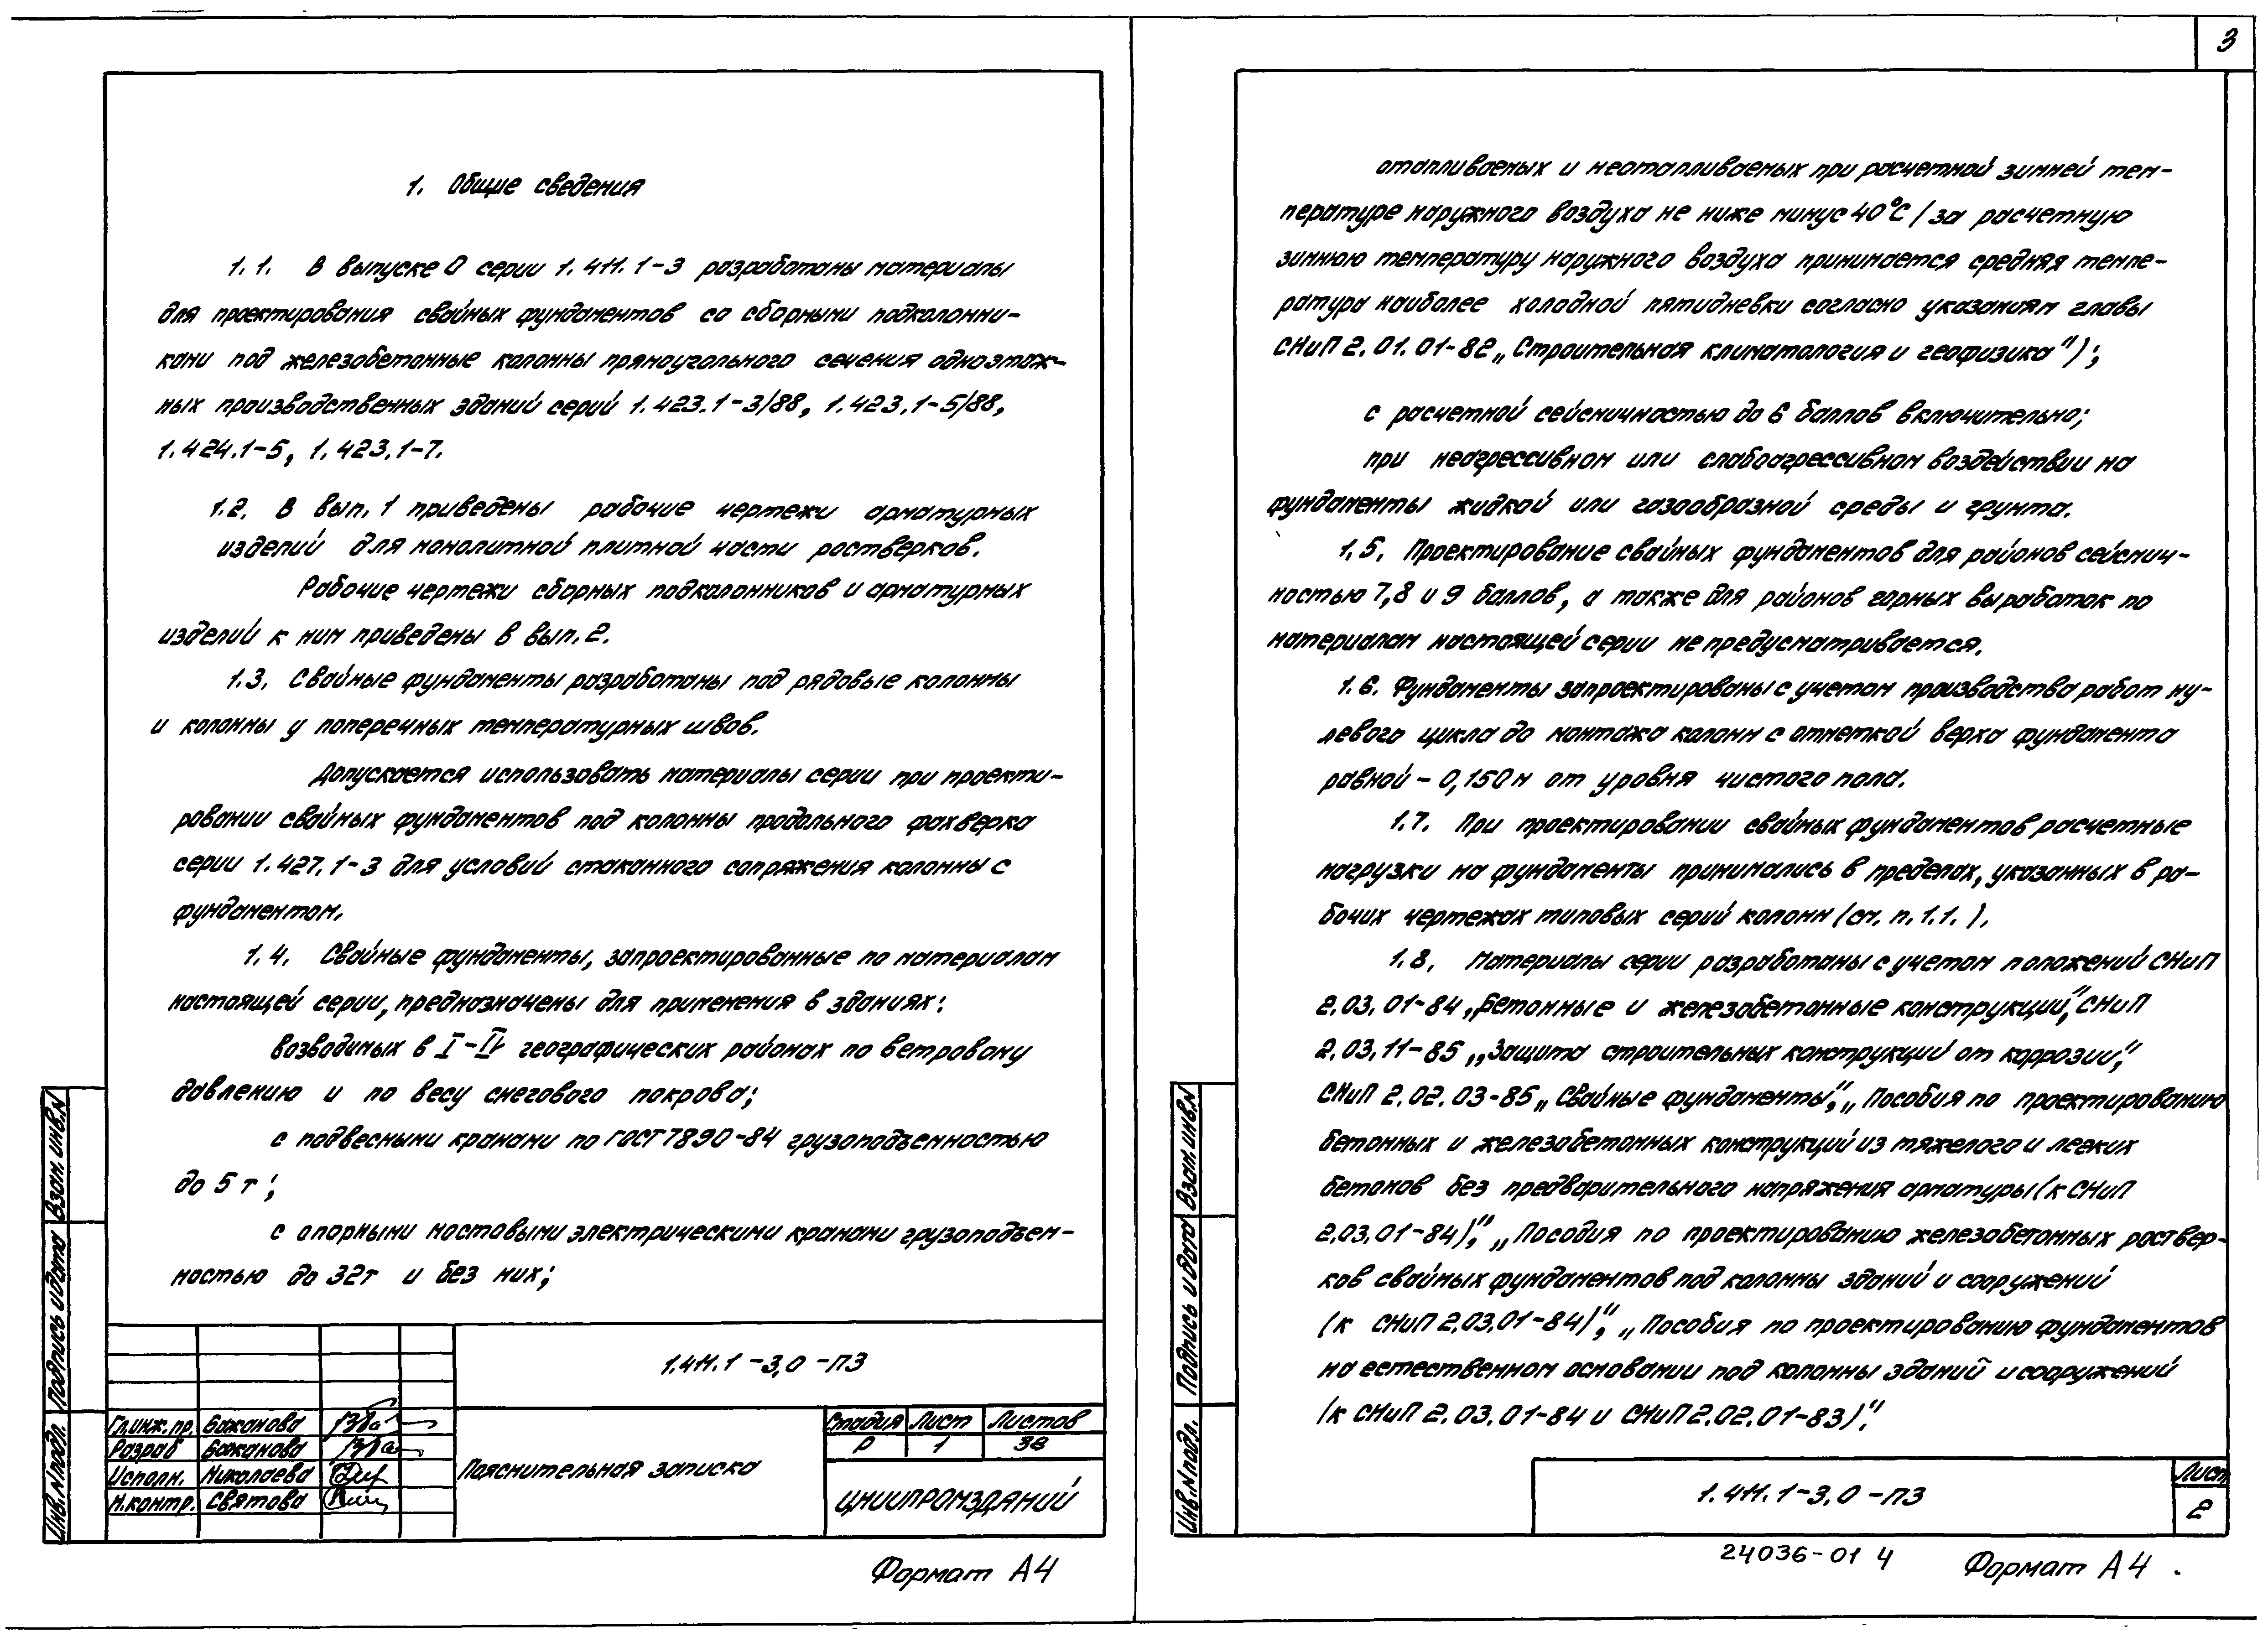 3
1. Общие сведения
1.1. В выпуске 0 серии 1.411.1-3 разработаны материалы
для проектирования свайных фундаментов со сборными подколонни-
ками под железобетонные колонны прямоугольного сечения одноэтаж-
ных производственных зданий серий 1.423.1-3/88, 1.423.1-5/88,
1.424.1-5, 1.423.1-7.
1.2. В вып. 1 приведены рабочие чертежи арматурных
изделий для монолитной плитной части ростверков.
Рабочие чертежи сборных подколонников и арматурных
изделий к ним приведены в вып. 2.
1.3. Свайные фундаменты разработаны под рядовые колонны
и колонны у поперечных температурных швов.
Допускается использовать материалы серии при проекти-
ровании свайных фундаментов под колонны продольного фахверка
серии 1.427.1-3 для условий стаканного сопряжения колонны с
фундаментом.
1.4. Свайные фундаменты, запроектированные по материалам
настоящей серии, предназначены для применения в зданиях:
возводимых в I-IV географических районах по ветровому
давлению и по весу снегового покрова;
с подвесными кранами по ГОСТ 7890-84 грузоподъемностью
до 5 т;
с опорными мостовыми электрическими кранами грузоподъем-
ностью до 32т и без них;
1.411.1-3.0-ПЗ
Гл.инж.пр. Бажанова
Разраб Бажанова
Исполн. Николаева
Н.контр. Святова
Пояснительная записка
Стадия Лист Листов
Р 1 38
ЦНИИПРОМЗДАНИЙ
Инв.N подл. Подпись и дата Взам.инв.N
Формат А4
отапливаемых и неотапливаемых при расчетной зимней тем-
пературе наружного воздуха не ниже минус 40°С (за расчетную
зимнюю температуру наружного воздуха принимается средняя темпе-
ратура наиболее холодной пятидневки согласно указаниям главы
СНиП 2.01.01-82 „Строительная климатология и геофизика");
с расчетной сейсмичностью до 6 баллов включительно;
при неагрессивном или слабоагрессивном воздействии на
фундаменты жидкой или газообразной среды и грунта.
1.5. Проектирование свайных фундаментов для районов сейсмич-
ностью 7,8 и 9 баллов, а также для районов горных выработок по
материалам настоящей серии не предусматривается.
1.6. Фундаменты запроектированы с учетом производства работ ну-
левого цикла до монтажа колонн с отметкой верха фундамента
равной - 0,150м от уровня чистого пола.
1.7. При проектировании свайных фундаментов расчетные
нагрузки на фундаменты принимались в пределах, указанных в ра-
бочих чертежах типовых серий колонн (см. п. 1.1.).
1.8. Материалы серии разработаны с учетом положений СНиП
2.03.01-84 „Бетонные и железобетонные конструкций", СНиП
2.03.11-85 „Защита строительных конструкций от коррозии",
СНиП 2.02.03-85 „Свайные фундаменты", „Пособия по проектированию
бетонных и железобетонных конструкций из тяжелого и легких
бетонов без предварительного напряжения арматуры (к СНиП
2.03.01-84)", „Пособия по проектированию железобетонных роствер-
ков свайных фундаментов под колонны зданий и сооружений
(к СНиП 2.03.01-84)", „Пособия по проектированию фундаментов
на естественном основании под колонны зданий и сооружений
(к СНиП 2.03.01-84 и СНиП 2.02.01-83)".
1.411.1-3.0-ПЗ
Лист
2
Инв.N подл. Подпись и дата Взам.инв.N
24036-01 4
Формат А4